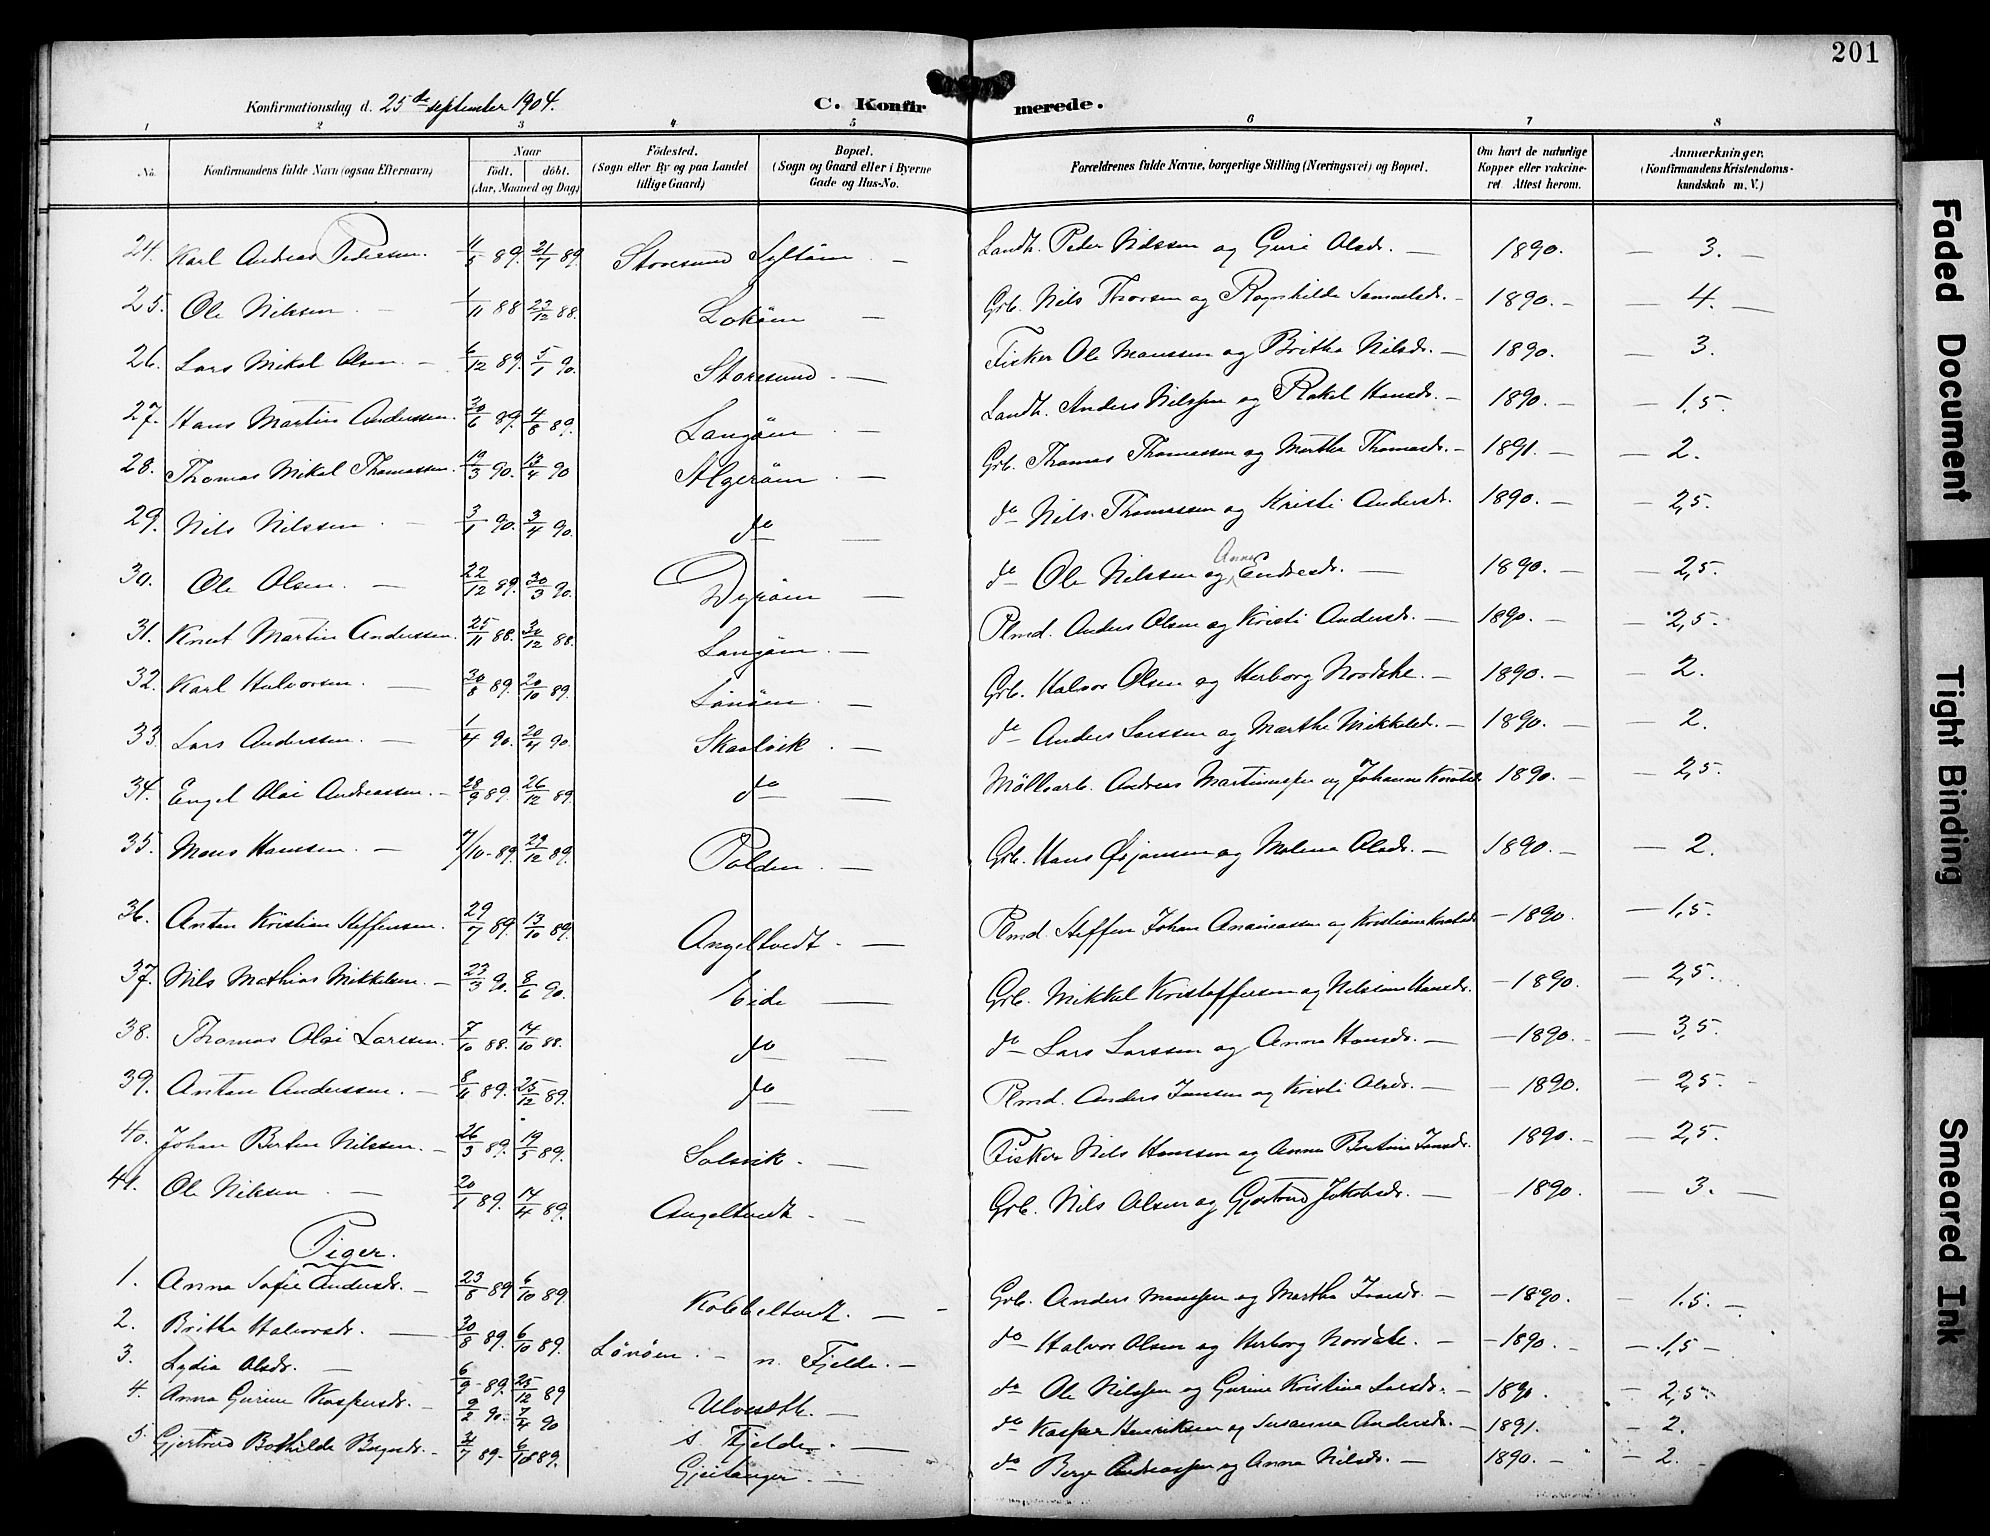 201
Konfirmationsdag d. 25de september 1904. C. Konfirmerede.
1 2 3 4 5 6 7 8
No. Konfirmandens fulde Navn (ogsaa Efternavn) Naar født. døbt. (Aar, Maaned og Dag) Fødested. (Sogn eller By og paa Landet tillige Gaard) Bopæl. (Sogn og Gaard eller i Byerne Gade og Hus-No. Forældrenes fulde Navne, borgerlige Stilling (Næringsvei) og Bopæl. Om havt de naturlige Kopper eller vakcineret Attest herom. Anmærkninger. (Konfirmandens Kristendomskundskab m. V.)
24. Karl Andreas Pedersen. 89. 21/7 89. Storesund Syltøen — Landh. Peder Nilssen og Guri Olsdr. — 1890. — 3. —
25. Ole Nilssen. — 1/11 88 23/12 88. Lokøen — Grb. Nils Thorsen og Ragnhilde Samuelsdr. — 1890. — 4. —
26. Lars Mikal Olsen. — 6/12 89. 5/1 90. Storesund. — Fisker Ole Monssen og Britha Nilsdr. — 1890. — 3.
27. Hans Martin Anderssen. 30/6 89. 4/8 89. Langøen — Landh. Anders Nilssen og Rakel Hansdr. — 1890. — 1,5.
28. Thomas Mikal Thomassen. 3 90. 13/4 90 Algerøen — Grb. Thomas Thomassen og Martha Thomasdr. — 1891. — 2.
29. Nils Nilssen. — 3/1 90. 3/4 90. do — do Nils Thomassen og Kristi Andersdr. 1890. — 2,5.
30. Ole Olsen. — 22/12 89. 30/3 90. Dyrøen — do Ole Nilssen og Anna Endresdr. — 1890. — 2,5.
31. Knut Martin Anderssen. 25/11 88. 30/12 88. Langøen — Plmd. Anders Olsen og Kristi Andersdr. — 1890. — 2,5.
32. Karl Halvorsen. — 30/8 89. 20/10 89. Lønøen. — Grb. Halvor Olsen og Herborg Nordske. — 1890. — 2.
33. Lars Anderssen. — 1/4 90. 20/4 90. Skaalvik. — do Anders Larssen og Marthe Mikkelsdr. — 1890. — 2.
34. Engel Olai Andreassen. — 28/9 89. 26/12 89. do — Møllearb. Andreas Martinussen og Johanne Knutsdr 1890. — 2,5.
35. Mons Hanssen. — 7/10 - 89. 29/12 89. Polden. — Grb. Hans Ørjansen og Malena Olsdr. — 1890. — 2.
36. Anton Kristian Steffensen. 29/7 89. 13/10 89. Angeltvedt. — Plmd. Steffen Johan Ananiassen og Kristiane Knutsdr — 1890. — 1,5.
37. Nils Mathias Mikkelsen. — 23/3 90. 8/6 90. Eide — Grb. Mikkel Kristoffersen og Nilsine Hansdr. — 1890. — 2,5.
38. Thomas Olai Larssen. 7/10 88. 14/10 88. do — do Lars Larssen og Anna Hansdr. — 1890. — 3,5.
39. Anton Anderssen. — 8/11 89. 25/12 89. do — Plmd. Anders Jansen og Kristi Olsdr. — 1890. — 2,5.
40. Johan Bertin Nilssen. — 26/3 89. 19/5 89. Solsvik. — Fisker Nils Hanssen og Anna Bertine Jansdr. 1890. — 2,5.
41. Ole Nilssen. — 20/1 89. 14/4 89. Angeltvedt. — Grb. Nils Olsen og Gjertrud Jakobsdr. — 1890. — 3. —
Piger.
1. Anna Sofie Andersdr. — 23/8 89. 6/10 89. Kobbeltvedt. — Grb. Anders Monssen og Martha Jansdr. — 1890. — 1,5. —
2. Britha Halvorsdr. — 30/8 89. 6/10 89. Lønøen. — n. Fjelde. — do Halvor Olsen og Herborg Nordske. — 1890. — 1,5 —
3. Lydia Olsdr. — 6/9 - 89. 25/12 89 Ulveseth. — do Ole Nilssen og Gurine Kristine Larsdr. — 1890. — 2,5
4. Anna Gurine Kaspersdr. — 9/2 90. 7/4 90 s. Fjelde. — do Kasper Henriksen og Susanna Andersdr. — 1891. — 2.
5. Gjertrud Bothilde Bergesdr. — 7 89 - 6/10 89. Gjeitanger. — do Berge Andreassen og Anna Nilsdr. — 1890. — 2.
Faded Document
Tight Binding
Smeared Ink